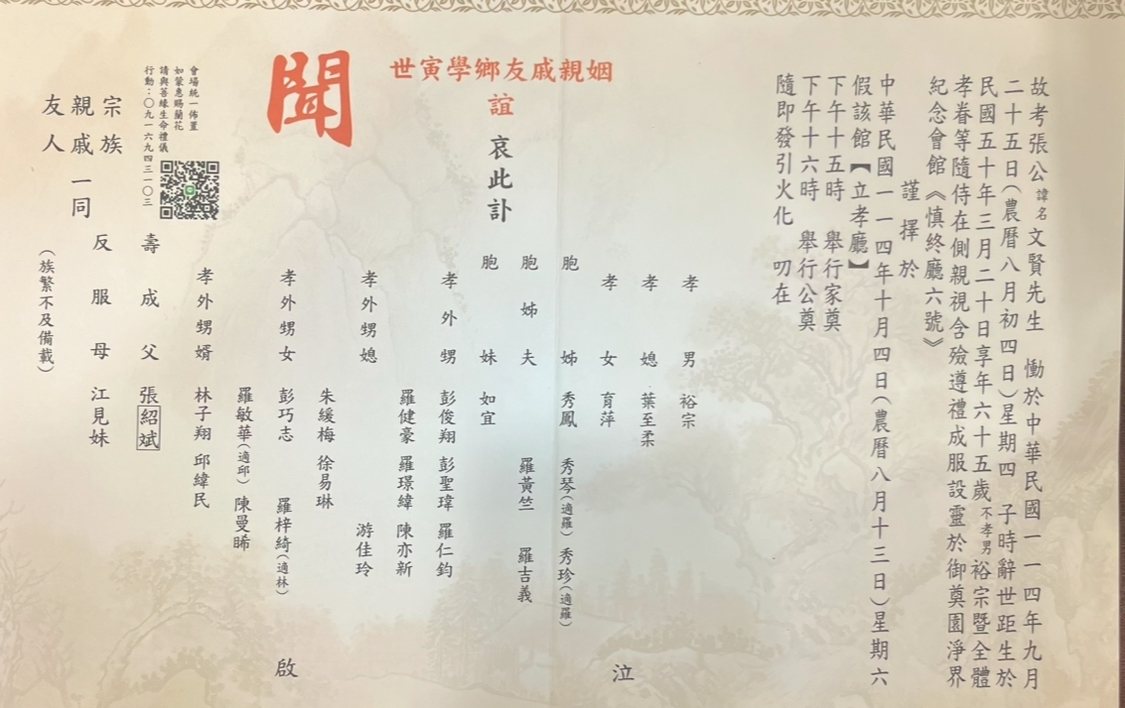 故考張公諱名文賢先生 慟於中華民國一一四年九月
二十五日(農曆八月初四日)星期四 子時辭世距生於
民國五十年三月二十日享年六十五歲不孝男裕宗暨全體
孝眷等隨侍在側親視含殮遵禮成服設靈於御奠園淨界
紀念會館《慎終廳六號》
謹擇於
中華民國一一四年十月四日(農曆八月十三日)星期六
假該館【立孝廳】
下午十五時 舉行家奠
下午十六時 舉行公奠
隨即發引火化 叨在
世寅學鄉友戚親姻
誼
哀此訃
聞
孝男 裕宗
孝媳 葉至柔
孝女 育萍
胞姊 秀鳳 秀琴(適羅) 秀珍(適羅)
胞姊夫 羅黃竺 羅吉義
胞妹 如宜
孝外甥 彭俊翔 彭聖瑋 羅仁鈞
羅健豪 羅璟緯 陳亦新
孝外甥媳 游佳玲
朱緩梅 徐易琳
孝外甥女 彭巧志 羅梓綺(適林)
羅敏華(適邱) 陳曼睎
孝外甥婿 林子翔 邱緯民
泣
啟
壽成父 張紹斌
反服母 江見妹
宗族
親戚一同
友人
(族繁不及備載)
會場統一佈置
如蒙惠賜蘭花
請與善緣生命禮儀
行動:〇九一六九四三一〇三